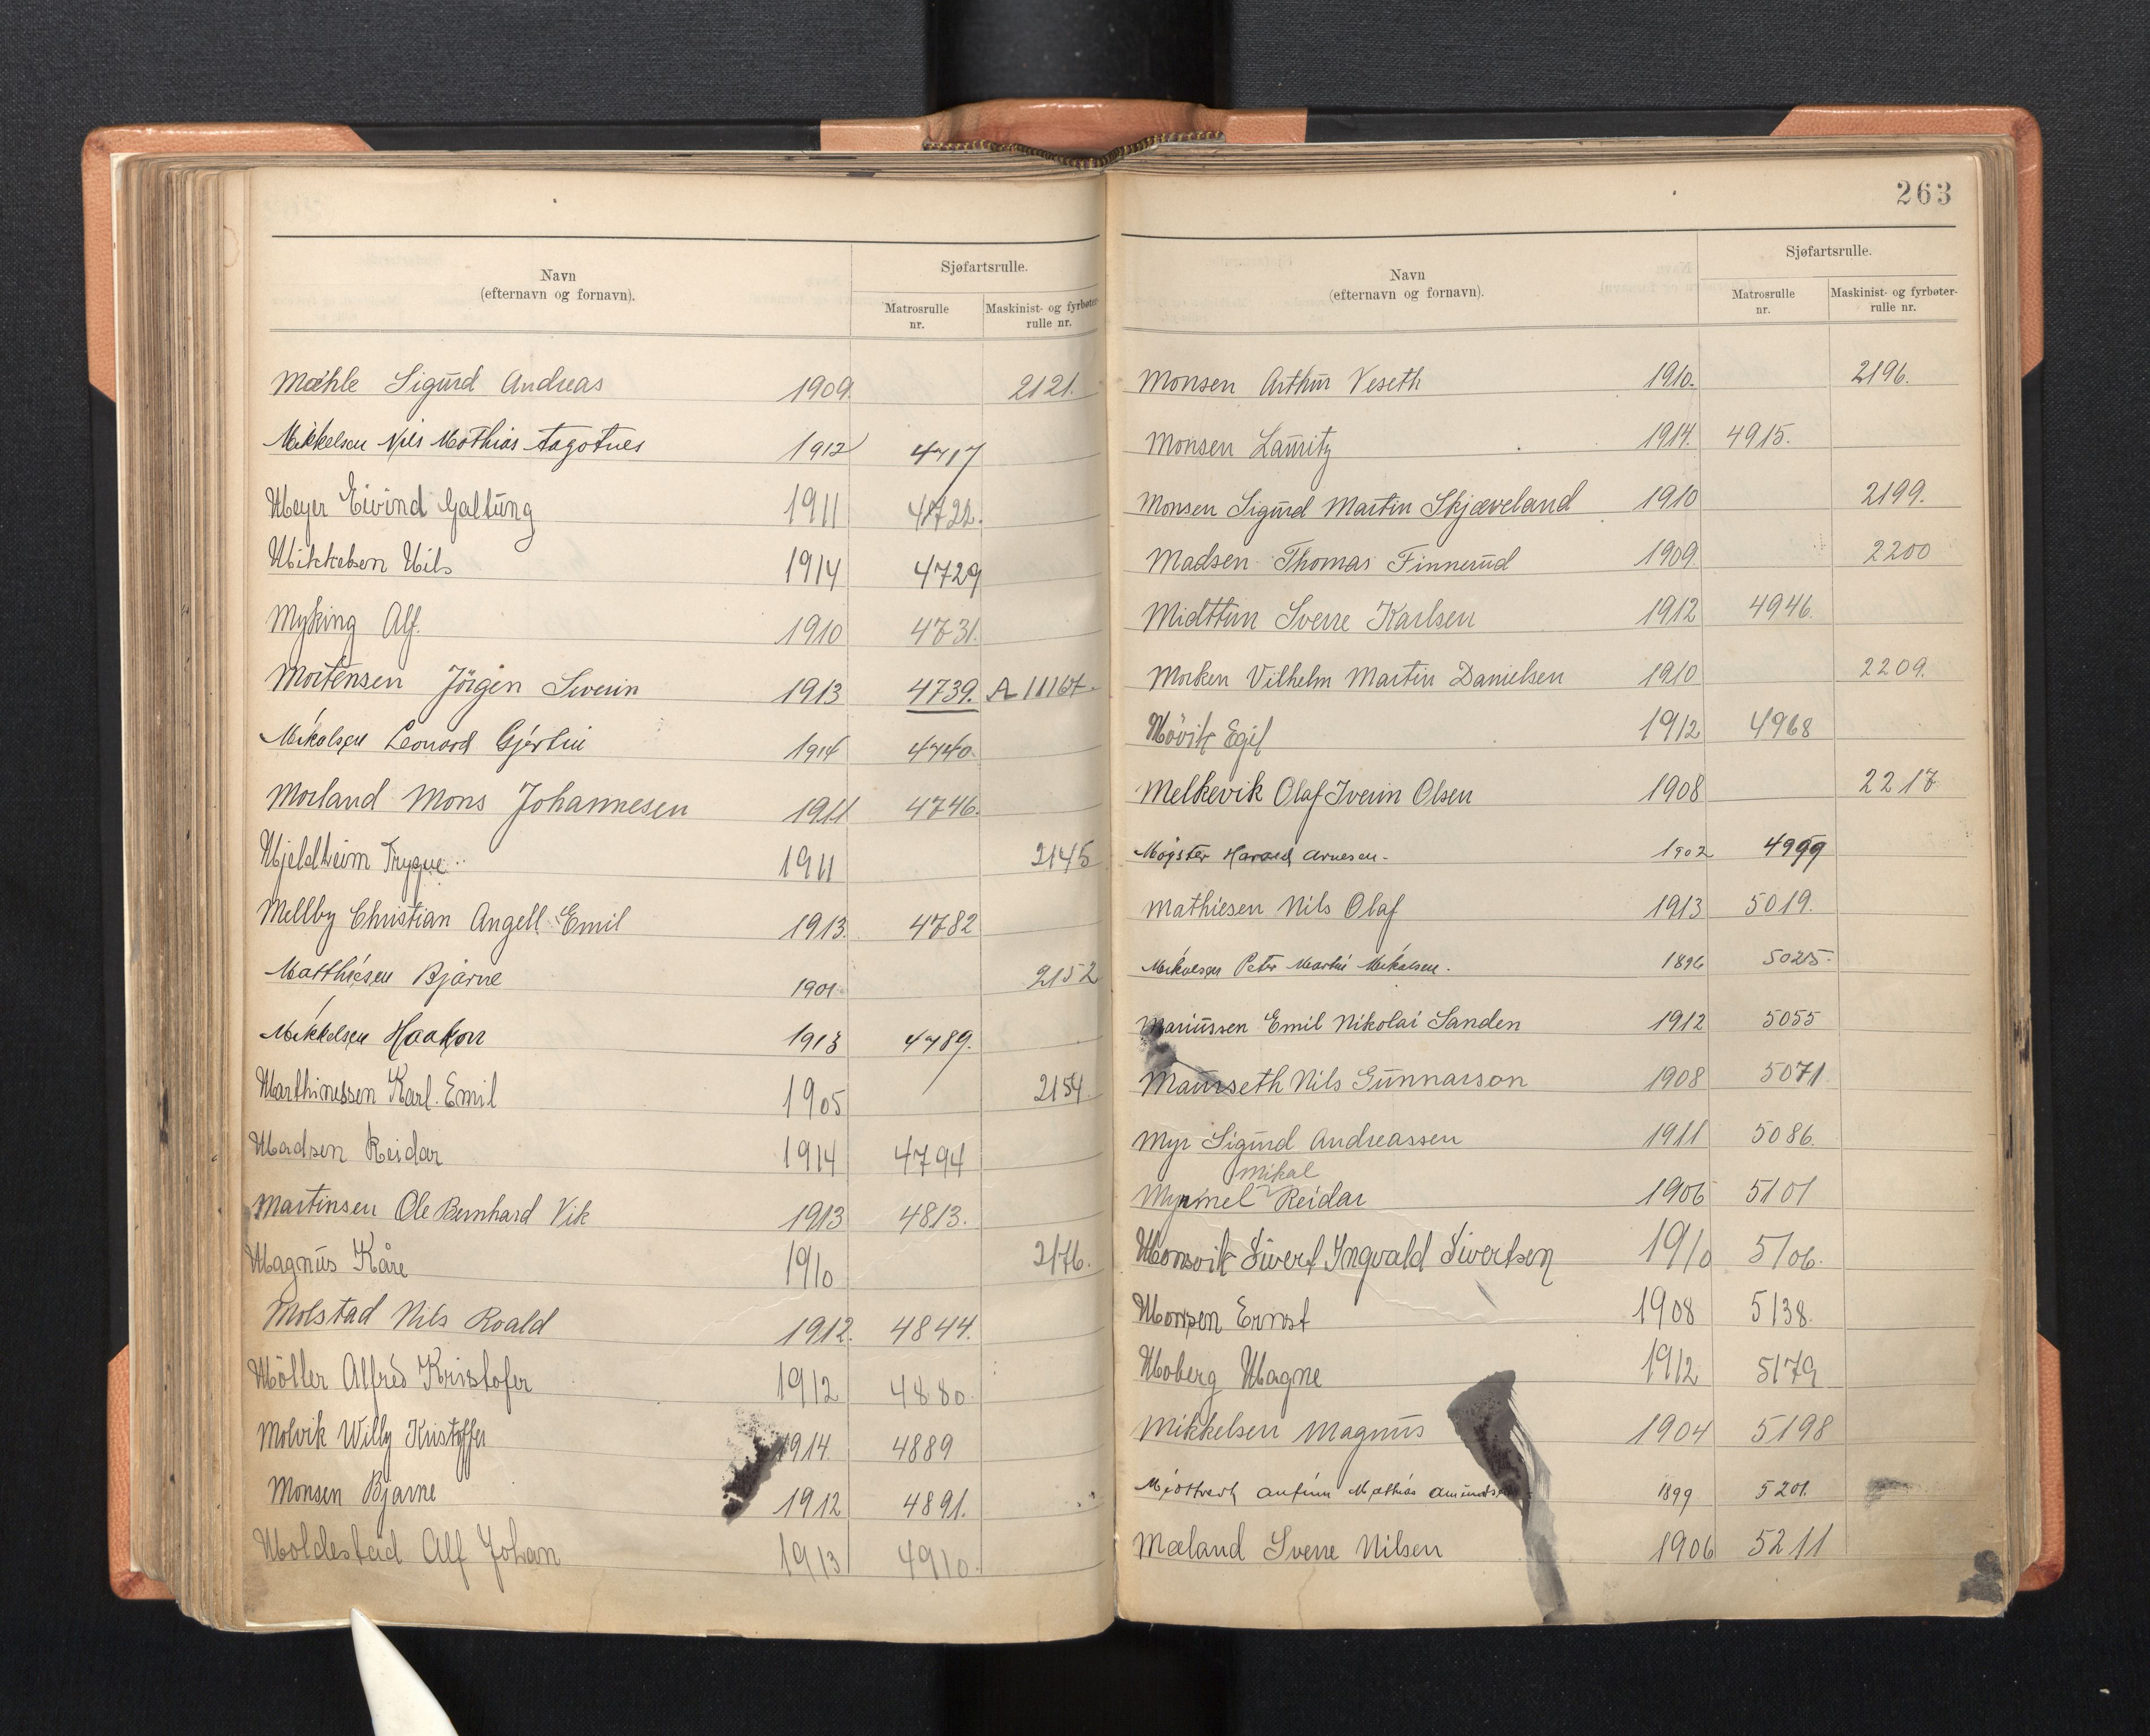 Navn
(efternavn og fornavn).
Sjøfartsrulle.
Matrosrulle
nr.
Maskinist- og fyrbøter-
rulle nr.
Mæhle Sigurd Andreas 1909. 2121.
Mikkelsen Nils Mathias Aagotnes 1912 4717
Meyer Eivind Galtung 1911 4722.
Mikkelsen Nils 1914 4729
Myking Alf. 1910 4731.
Mortensen Jörgen Severin 1913 4739. A 11167
Mikalsen Leonard Gjertin 1914 4740.
Morland Mons Johannesen 1911 4746.
Mjeldheim Trygve 1911 2145
Mellby Christian Angell Emil 1913. 4782
Matthiesen Bjarne 1901. 2152
Mikkelsen Haakon 1913 4789.
Marthinussen Karl. Emil 1905 2154.
Madsen Reidar 1914 4794
Martinsen Ole Bernhard Vik 1913 4813.
Magnus Kåre 1910 2176.
Molstad Nils Roald 1912. 4844.
Möller Alfred Kristofer 1912 4880.
Molvik Willy Kristoffer 1914. 4889
Monsen Bjarne 1912 4891.
Moldestad Alf Johan 1913 4910.
263
Navn
(efternavn og fornavn).
Sjøfartsrulle.
Matrosrulle
nr.
Maskinist- og fyrbøter-
rulle nr.
Monsen Arthur Veseth 1910. 2196.
Monsen Lauritz 1914. 4915.
Monsen Sigurd Martin Skjæveland 1910 2199.
Madsen Thomas Finnerud 1909 2200
Midttun Sverre Karlsen 1912 4946.
Morken Vilhelm Martin Danielsen 1910 2209.
Mövik Egil 1912 4968
Melkevik Olaf Iverin Olsen 1908 2217
Møgster Harald Arnesen. 1902 4999
Mathiesen Nils Olaf 1913 5019.
Mikalsen Peter Martin Mikalsen. 1896 5025.
Mariussen Emil Nikolai Sanden 1912 5055
Maurseth Nils Gunnarson 1908 5071
Myr Sigurd Andreassen 1911 5086.
Mikal
Myrmel Reidar 1906 5101
Monsvik Sivert Ingvald Sivertsen 1910 5106.
Monsen Ernst 1908 5138.
Moberg Magne 1912 5179
Mikkelsen Magnus 1904 5198
Anfinn Mathias 1899 5201.
Mæland Sverre Nilsen 1906 5211